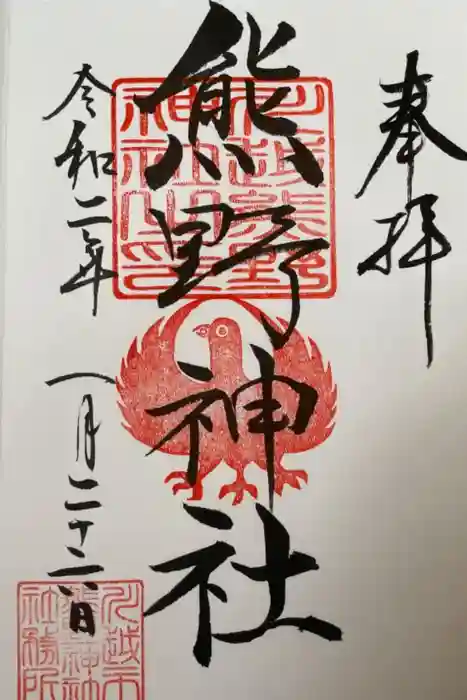 奉拝
熊野神社
川越熊野
神社之印
令和二年
一月二十二日
川越市
熊野神
社務所